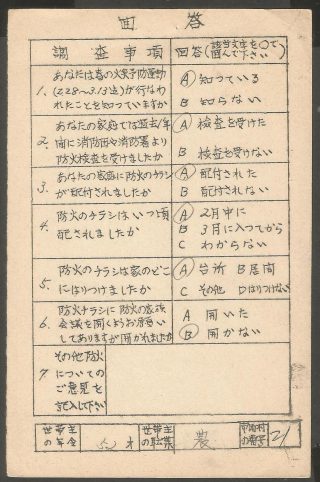 回答
調査事項
回答(該当文字を○で
囲んで下さい)
1. あなたは春の火災予防運動
(2.28〜3.13迄)が行なわ
れたことを知っていますか
Ⓐ 知っている
B 知らない
2. あなたの家庭では過去1年
間に消防団や消防署より
防火検査を受けましたか
Ⓐ 検査を受けた
B 検査を受けない
3. あなたの家庭に防火のチラシ
が配付されましたか
Ⓐ 配付された
B 配付されない
4. 防火のチラシはいつ頃
配されましたか
Ⓐ 2月中に
B 3月に入ってから
C わからない
5. 防火のチラシは家のどこ
にはりつけましたか
Ⓐ 台所 B 居間
C その他 D はりつけない
6. 防火チラシに防火の家族
会議を開くようお願い
してありますが開かれましたか
A 開いた
Ⓑ 開かない
7. その他防火
についての
ご意見を
記入して下さい
世帯主
の年令
才
世帯主
の職業
農
市町村
の番号
21